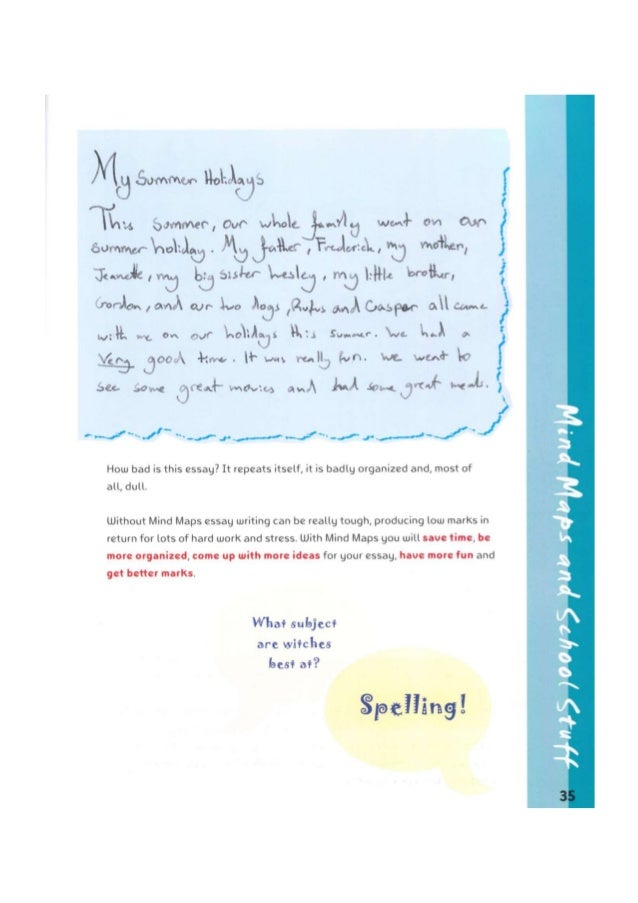 My Summer Holidays
This Summer, our whole family went on our
summer holiday. My father, Frederick, my mother,
Jeanette, my big sister Lesley, my little brother,
Gordon, and our two dogs, Rufus and Casper all came
with me on our holidays this summer. We had a
Very good time. It was really fun. We went to
see some great movies and had some great meals.
How bad is this essay? It repeats itself, it is badly organized and, most of
all, dull.
Without Mind Maps essay writing can be really tough, producing low marks in
return for lots of hard work and stress. With Mind Maps you will save time, be
more organized, come up with more ideas for your essay, have more fun and
get better marks.
What subject
are witches
best at?
Spelling!
Mind Maps and School Stuff
35